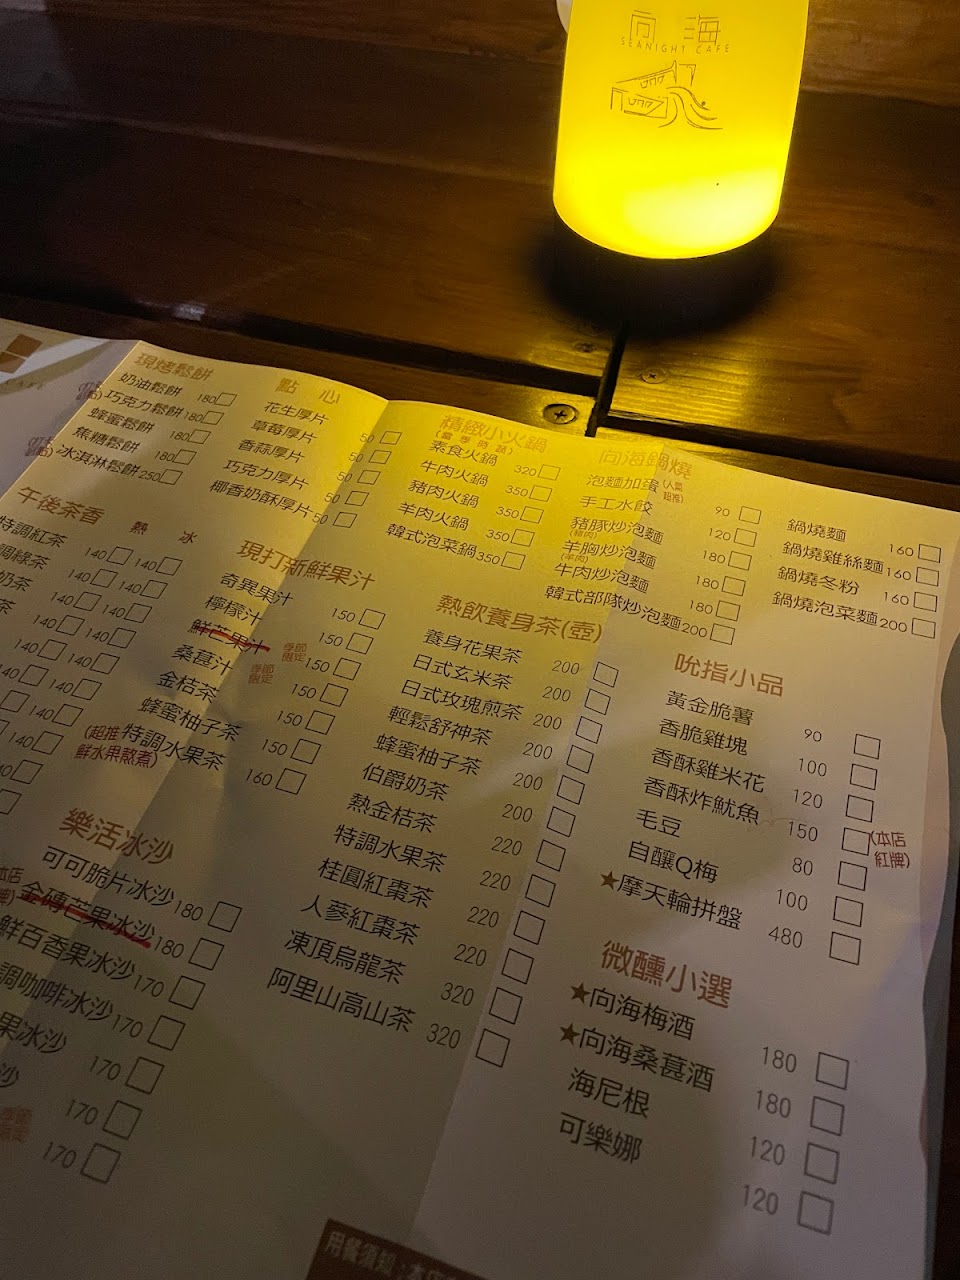 向海
SEANIGHT CAFE
現烤鬆餅
奶油鬆餅 180
巧克力鬆餅 180
蜂蜜鬆餅 180
焦糖鬆餅 180
冰淇淋鬆餅 250
點心
花生厚片 50
草莓厚片 50
香蒜厚片 50
巧克力厚片 50
椰香奶酥厚片 50
精緻小火鍋
(當季時蔬)
素食火鍋 320
牛肉火鍋 350
豬肉火鍋 350
羊肉火鍋 350
韓式泡菜鍋 350
向海鍋燒
泡麵加蛋 (人氣超推) 90
手工水餃 120
豬豚炒泡麵 180
(豬肉)
羊胸炒泡麵 180
(羊肉)
牛肉炒泡麵 180
韓式部隊炒泡麵 200
鍋燒麵 160
鍋燒雞絲麵 160
鍋燒冬粉 160
鍋燒泡菜麵 200
午後茶香
熱 冰
特調紅茶 140 140
調綠茶 140 140
奶茶 140 140
茶 140 140
140 140
140 140
140
140
現打新鮮果汁
奇異果汁 150
檸檬汁 150
鮮芒果汁 季節限定 150
桑葚汁 季節限定 150
金桔茶 150
蜂蜜柚子茶 150
(超推 特調水果茶 160
鮮水果熬煮)
熱飲養身茶(壺)
養身花果茶 200
日式玄米茶 200
日式玫瑰煎茶 200
輕鬆舒神茶 200
蜂蜜柚子茶 200
伯爵奶茶 200
熱金桔茶 220
特調水果茶 220
桂圓紅棗茶 220
人蔘紅棗茶 220
凍頂烏龍茶 320
阿里山高山茶 320
吮指小品
黃金脆薯 90
香脆雞塊 100
香酥雞米花 120
香酥炸魷魚 150 (本店紅牌)
毛豆 80
自釀Q梅 100
★摩天輪拼盤 480
樂活冰沙
可可脆片冰沙 180
金磚芒果冰沙 180
鮮百香果冰沙 170
調咖啡冰沙 170
果冰沙 170
沙 170
170
微醺小選
★向海梅酒 180
★向海桑葚酒 180
海尼根 120
可樂娜 120
用餐須知:本店